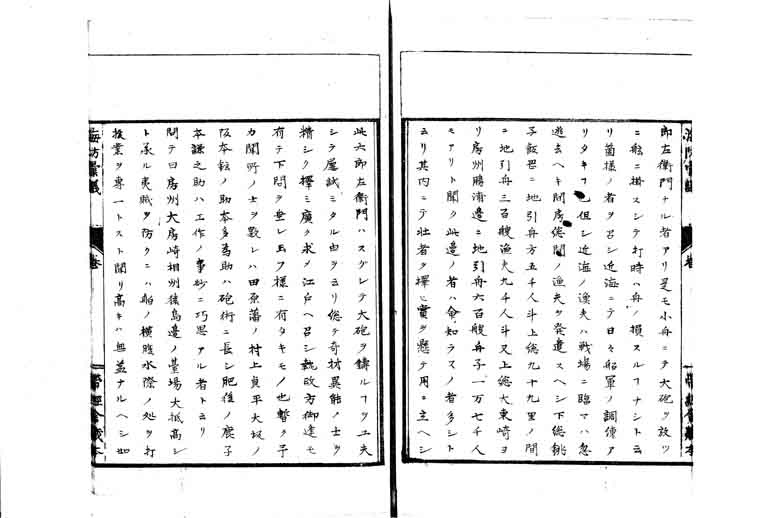 郎左衛門ナル者アリ是モ小舟ニテ大砲ヲ放ツ
ニ舷ニ掛スシテ打時ハ舟ノ損スルヿナシト云
リ箇様ノ者ヲ召シ近海ニテ日々船軍ノ調煉ア
リタキヿ也但シ近海ノ漁夫ハ戦場ニ臨マハ忽
逃去ヘキ間房総間ノ漁夫ヲ発遣スヘシ下総銚
子飯岡ニ地引舟方五千人斗上総九十九里ノ間
ニ地引舟三百艘漁夫九千人斗又上総大東崎ヨ
リ房州勝浦邊ニ地引舟六百艘舟子一万七千人
モアリト聞ク此邊ノ者ハ命知ラスノ者多シト
云リ其内ニテ壮者ヲ擇ヒ賞ヲ懸テ用ヒ玉ヘシ
此六郎左衛門ハスグレテ大砲ヲ鋳ルヿヲ工夫
シテ屡試ミタル由ヲ云リ総テ奇材異能ノ士ヲ
精シク擇ミ廣ク求メ江戸ヘ召シ執政方御逢モ
有テ下問ヲ垂レ玉フ様ニ有タキモノ也暫ク予
カ聞所ノ士ヲ数レハ田原藩ノ村上貞平大坂ノ
阪本鉉ノ助本多為助ハ砲術ニ長シ肥後ノ鹿子
木謙之助ハ工作ノ事妙ニ巧思アル者ト云リ
問テ曰房州大房崎相州猿島邊ノ臺場大抵高シ
ト承ル夷賊ヲ防クニハ船ノ横腹水際ノ処ヲ打
ヲ専一トスト聞リ高キハ無益ナルヘシ如
海防彙議
巻